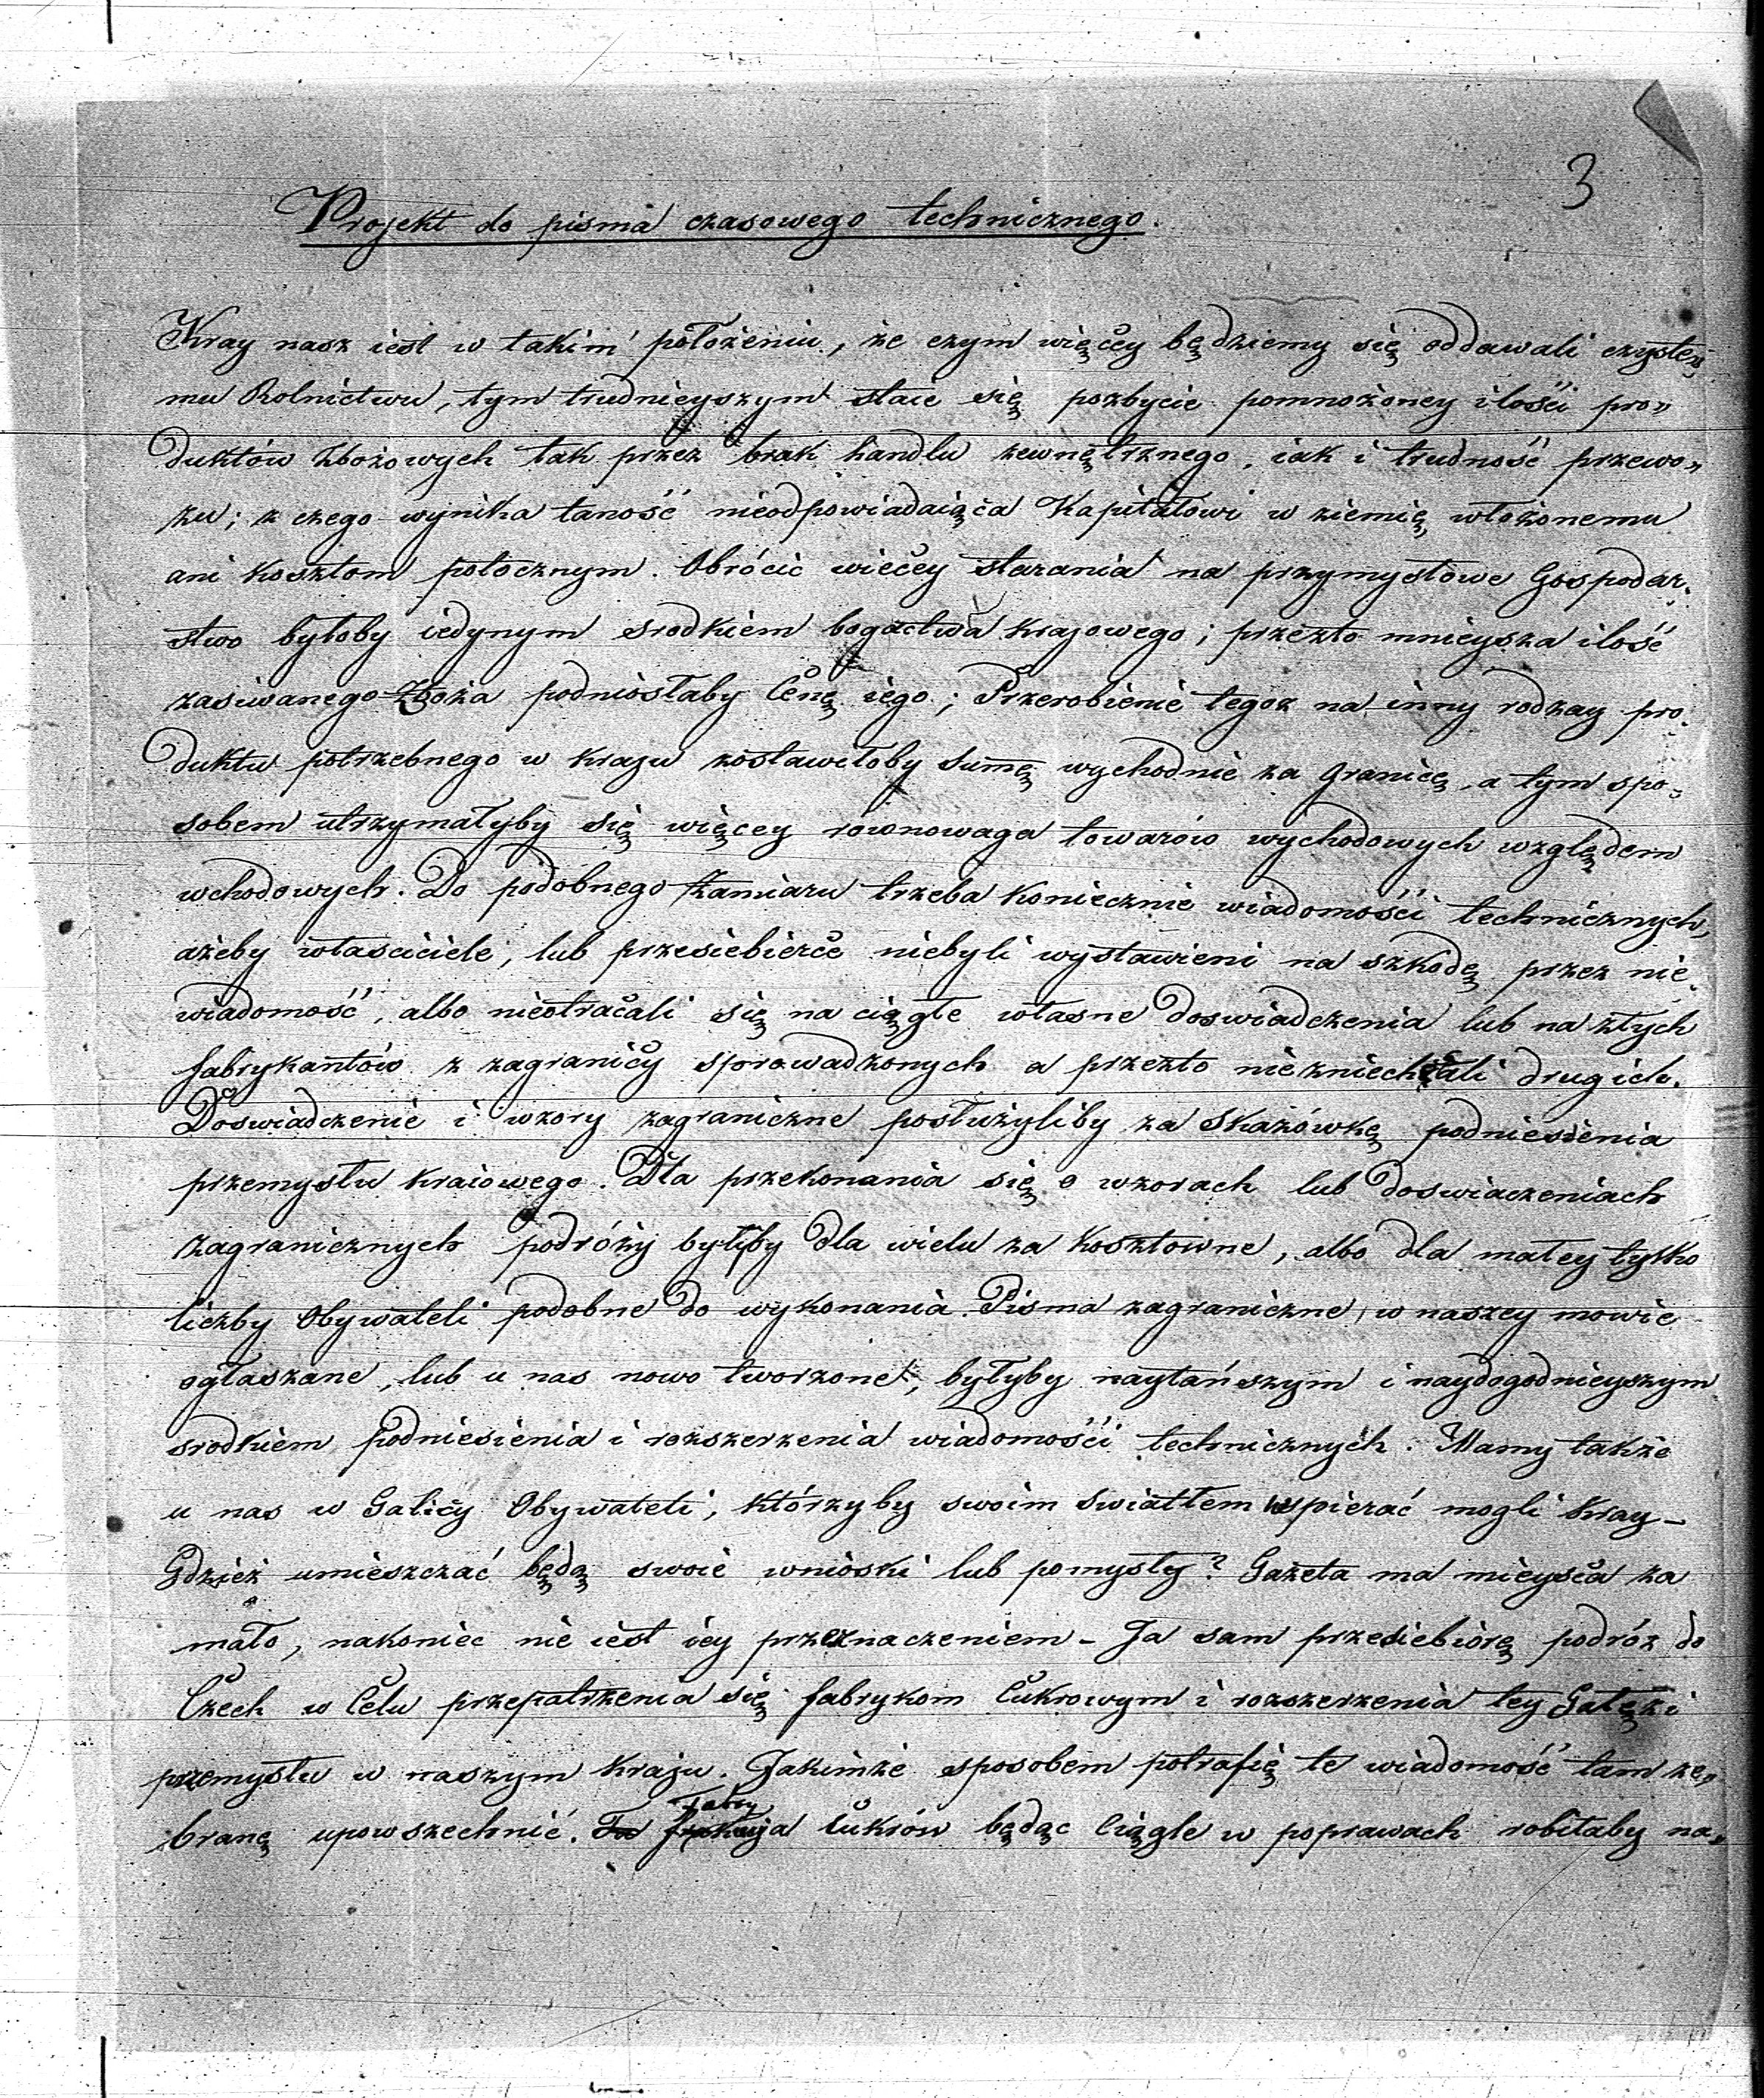 3
Projekt do pisma czasowego technicznego.
Kray nasz iest w takim położeniu, że czym więcey będziemy się oddawali czyste„
mu Rolnictwu, tym trudnieyszym staie się pozbycie pomnożoney ilości pro„
duktów zbożowych tak przez brak handlu zewnętrznego, iak i trudność przewo„
zu; z czego wynika taność nieodpowiadaiąca Kapitałowi w ziemię włożonemu
ani kosztom potocznym. Obrócić więcey starania na przymysłowe Gospodar„
stwo byłoby iedynym srodkiem bogactwa krajowego; przezto mnieysza ilość
zasiwanego Zboża podniosłaby Cenę iego; Przerobienie tegoz na inny rodzay pro„
duktu potrzebnego w kraju zostawiłoby sumę wychodnie za granicę, a tym spo„
sobem utrzymałyby się więcey rownowaga towarów wychodowych względem
wchodowych. Do podobnego Zamiaru trzeba koniecznie wiadomości technicznych,
ażeby własciciele, lub przesiebierce niebyli wystawieni na szkodę przez nie„
wiadomość, albo niestracali się na ciągłe własne doswiadczenia lub na złych
fabrykantów z zagranicy sprowadzonych a przezto niezniechęcali drugich.
Doswiadczenie i wzory zagraniczne posłużyliby za Skazówkę podniesienia
przemysłu kraiowego. Dla przekonania się o wzorach lub doswiaczeniach
zagranicznych podróży byłyby dla wielu za kosztowne, albo dla małey tylko
liczby Obywateli podobne do wykonania. Pisma zagraniczne, w naszey mowie
ogłaszane, lub u nas nowo tworzone, byłyby naytańszym i naydogodnieyszym
srodkiem podniesienia i rozszerzenia wiadomości technicznych. Mamy także
u nas w Galicy Obywateli, którzyby swoim swiatłem wspierać mogli kray –
Gdzież umieszczać będą swoie wnioski lub pomysły? Gazeta ma mieysca za
mało, nakoniec nie iest iey przeznaczeniem – Ja sam przesiebiorę podróz do
Czech w Celu przepatrzenia się fabrykom Cukrowym i rozszerzenia tey Gałęzi
przemysłu w naszym kraju. Jakimże sposobem potrafię te wiadomość tam ze„
braną upowszechnić. Fabry
kacyja Cukrów będąc Ciągle w poprawach robiłaby na„